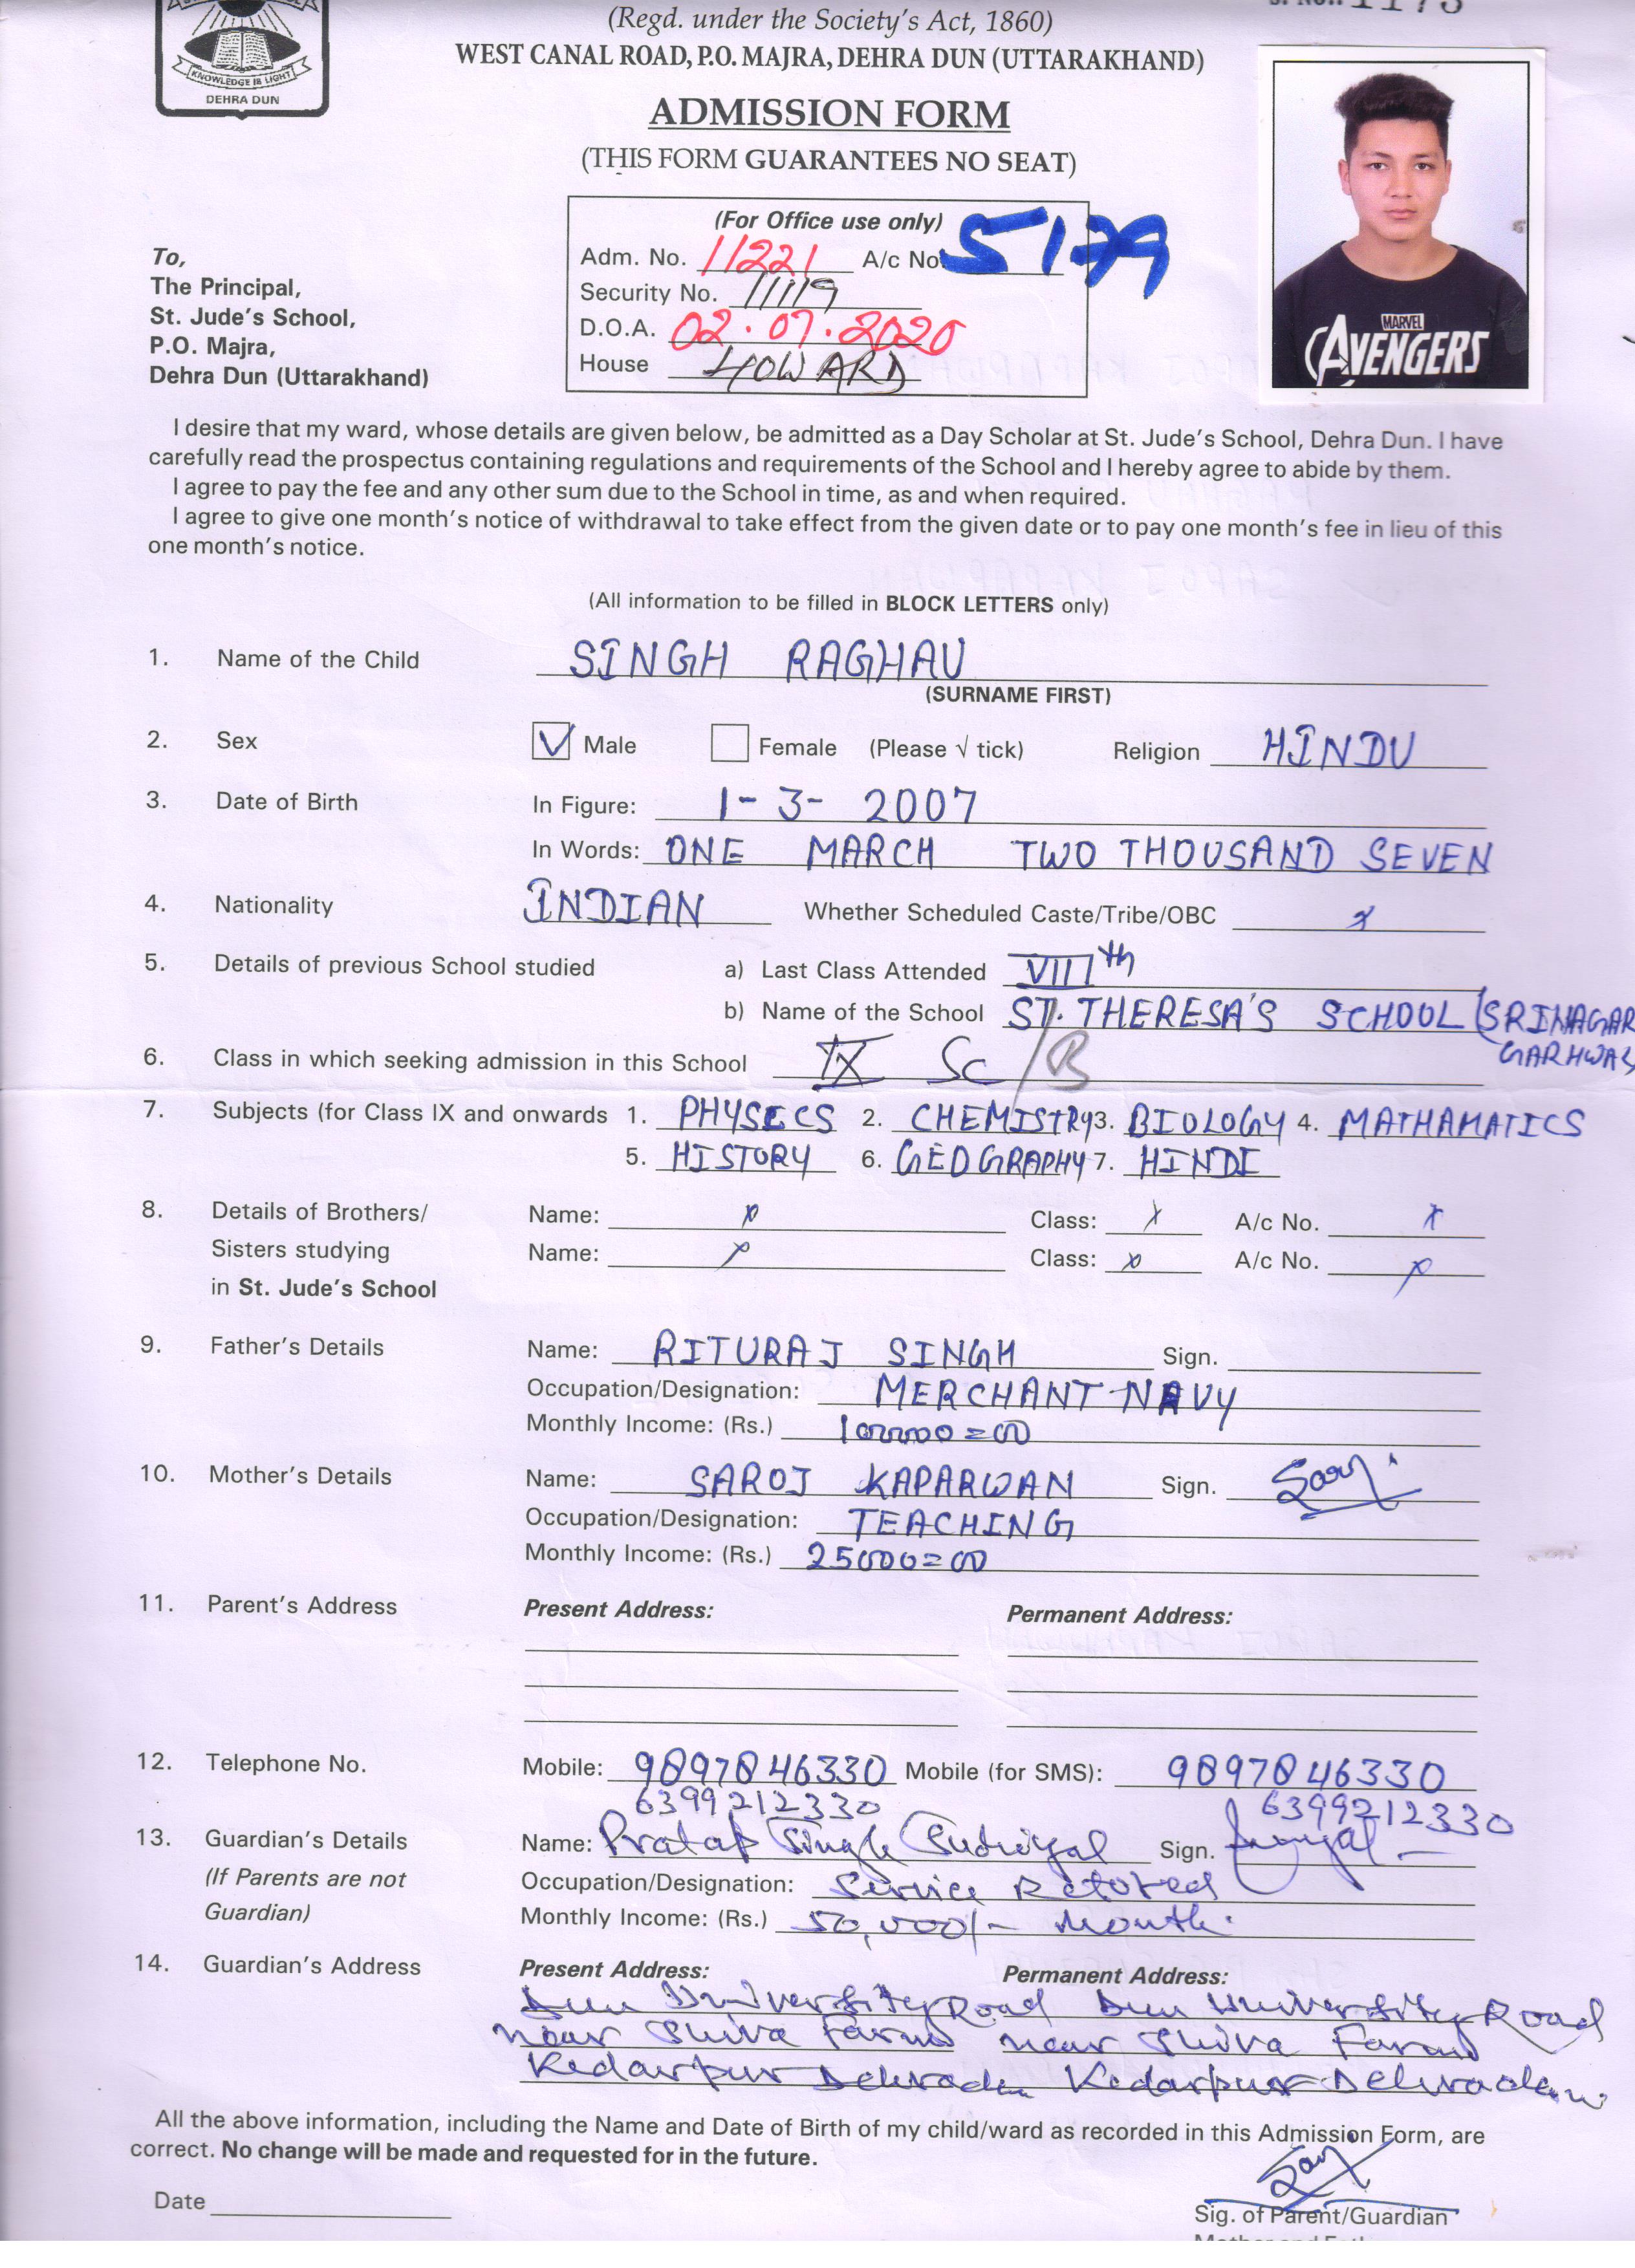 KNOWLEDGE IS LIGHT
DEHRA DUN
(Regd. under the Society's Act, 1860)
WEST CANAL ROAD, P.O. MAJRA, DEHRA DUN (UTTARAKHAND)
ADMISSION FORM
(THIS FORM GUARANTEES NO SEAT)
MARVEL
AVENGERS
(For Office use only)
Adm. No. 11221 A/c No 5179
Security No. 11119
D.O.A. 02.07.2020
House HOWARD
To,
The Principal,
St. Jude's School,
P.O. Majra,
Dehra Dun (Uttarakhand)
I desire that my ward, whose details are given below, be admitted as a Day Scholar at St. Jude's School, Dehra Dun. I have
carefully read the prospectus containing regulations and requirements of the School and I hereby agree to abide by them.
I agree to pay the fee and any other sum due to the School in time, as and when required.
I agree to give one month's notice of withdrawal to take effect from the given date or to pay one month's fee in lieu of this
one month's notice.
(All information to be filled in BLOCK LETTERS only)
1. Name of the Child SINGH RAGHAV
(SURNAME FIRST)
2. Sex Male Female (Please √ tick) Religion HINDU
3. Date of Birth In Figure: 1-3-2007
In Words: ONE MARCH TWO THOUSAND SEVEN
4. Nationality INDIAN Whether Scheduled Caste/Tribe/OBC x
5. Details of previous School studied a) Last Class Attended VIIIth
b) Name of the School ST. THERESA'S SCHOOL (SRINAGAR
GARHWAL
6. Class in which seeking admission in this School IX Sc / B
7. Subjects (for Class IX and onwards 1. PHYSICS 2. CHEMISTRY 3. BIOLOGY 4. MATHAMATICS
5. HISTORY 6. GEOGRAPHY 7. HINDI
8. Details of Brothers/ Name: x Class: x A/c No. x
Sisters studying Name: x Class: x A/c No. x
in St. Jude's School
9. Father's Details Name: RITURAJ SINGH Sign.
Occupation/Designation: MERCHANT NAVY
Monthly Income: (Rs.) 100000=00
10. Mother's Details Name: SAROJ KAPARWAN Sign. Saroj
Occupation/Designation: TEACHING
Monthly Income: (Rs.) 25000=00
11. Parent's Address Present Address: Permanent Address:
12. Telephone No. Mobile: 9897846330 Mobile (for SMS): 9897846330
6399212330 6399212330
13. Guardian's Details Name: Pratap Singh Sign.
(If Parents are not Occupation/Designation: Service Retired
Guardian) Monthly Income: (Rs.) 50,000/- Month.
14. Guardian's Address Present Address: Permanent Address:
Dun University Road Dun University Road
near Shiva Farm near Shiva Farm
Kedarpur Dehradun Kedarpur Dehradun
All the above information, including the Name and Date of Birth of my child/ward as recorded in this Admission Form, are
correct. No change will be made and requested for in the future.
Date
Sig. of Parent/Guardian